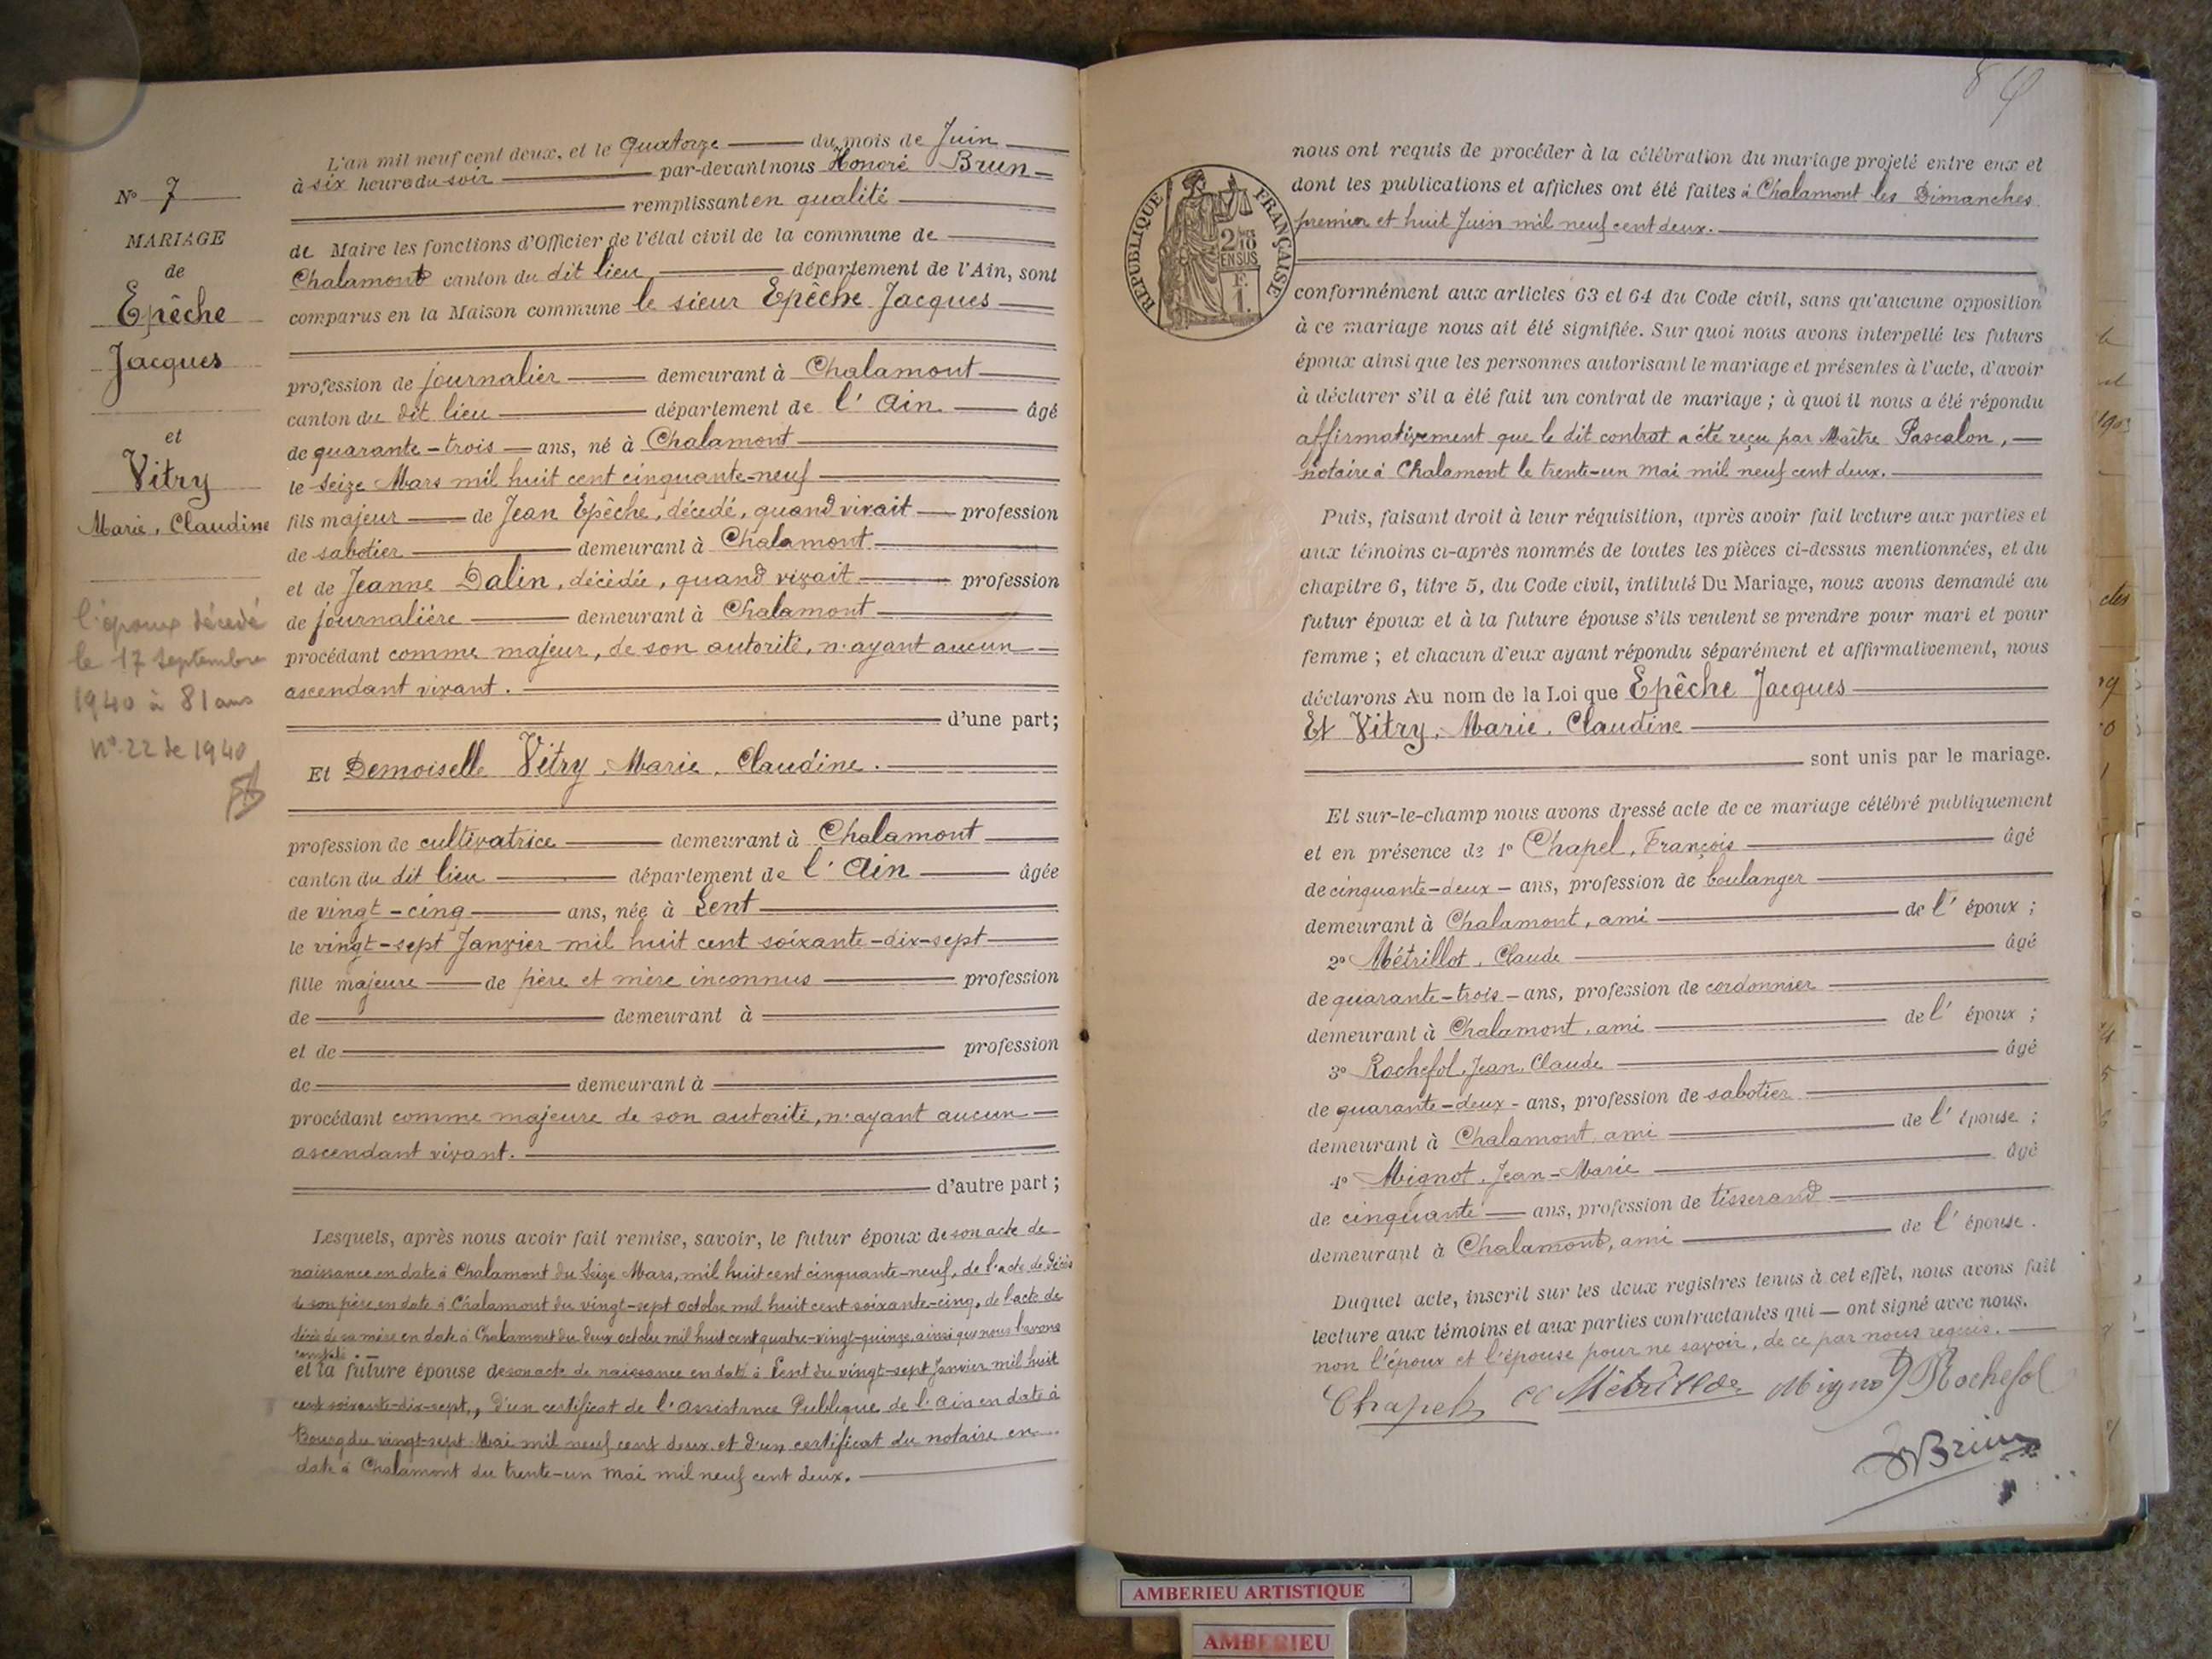 N° 7
MARIAGE
de
Epêche
Jacques
et
Vitry
Marie, Claudine
l'époux décédé
le 17 Septembre
1940 à 81 ans
n° 22 de 1940
L'an mil neuf cent deux, et le quatorze du mois de Juin
à six heure du soir par-devant nous Honoré Brun
remplissant en qualité
de Maire les fonctions d'Officier de l'état civil de la commune de
Chalamont canton du dit lieu département de l'Ain, sont
comparus en la Maison commune le sieur Epêche Jacques
profession de journalier demeurant à Chalamont
canton du dit lieu département de l'Ain âgé
de quarante-trois ans, né à Chalamont
le Seize Mars mil huit cent cinquante-neuf
fils majeur de Jean Epêche, décedé, quand vivait profession
de sabotier demeurant à Chalamont
et de Jeanne Dalin, décèdée, quand vivait profession
de journalière demeurant à Chalamont
procédant comme majeur, de son autorité, n'ayant aucun
ascendant vivant.
d'une part;
Et Demoiselle Vitry, Marie, Claudine.
profession de cultivatrice demeurant à Chalamont
canton du dit lieu département de l'Ain âgée
de vingt-cinq ans, née à Lent
le vingt-sept Janvier mil huit cent soixante-dix-sept
fille majeure de père et mère inconnus profession
de demeurant à
et de profession
de demeurant à
procédant comme majeure de son autorité, n'ayant aucun
ascendant vivant.
d'autre part;
Lesquels, après nous avoir fait remise, savoir, le futur époux de son acte de
naissance en date à Chalamont du Seize Mars, mil huit cent cinquante-neuf, de l'acte de décès
de son père en date à Chalamont du vingt-sept octobre mil huit cent soixante-cinq, de l'acte de
décès de sa mère en date à Chalamont du deux octobre mil huit cent quatre-vingt-quinze, ainsi que nous l'avons
constaté.
et la future épouse de son acte de naissance en date à Lent du vingt-sept Janvier mil huit
cent soixante-dix-sept, d'un certificat de l'Assistance Publique de l'Ain en date à
Bourg du vingt-sept Mai mil neuf cent deux et d'un certificat du notaire en
date à Chalamont du trente-un Mai mil neuf cent deux.
84
REPUBLIQUE FRANÇAISE
2 10
EN SUS
F.
1.
nous ont requis de procéder à la célébration du mariage projeté entre eux et
dont les publications et affiches ont été faites à Chalamont les Dimanches
premier et huit Juin mil neuf cent deux.
conformément aux articles 63 et 64 du Code civil, sans qu'aucune opposition
à ce mariage nous ait été signifiée. Sur quoi nous avons interpellé les futurs
époux ainsi que les personnes autorisant le mariage et présentes à l'acte, d'avoir
à déclarer s'il a été fait un contrat de mariage; à quoi il nous a été répondu
affirmativement que le dit contrat a été reçu par Maître Pascalon,
notaire à Chalamont le trente-un mai mil neuf cent deux.
Puis, faisant droit à leur réquisition, après avoir fait lecture aux parties et
aux témoins ci-après nommés de toutes les pièces ci-dessus mentionnées, et du
chapitre 6, titre 5, du Code civil, intitulé Du Mariage, nous avons demandé au
futur époux et à la future épouse s'ils veulent se prendre pour mari et pour
femme; et chacun d'eux ayant répondu séparément et affirmativement, nous
déclarons Au nom de la Loi que Epêche Jacques
Et Vitry, Marie, Claudine
sont unis par le mariage.
Et sur-le-champ nous avons dressé acte de ce mariage célébré publiquement
et en présence de 1° Chapel, François âgé
de cinquante-deux ans, profession de boulanger
demeurant à Chalamont, ami de l'époux;
2° Métrillot, Claude âgé
de quarante-trois ans, profession de cordonnier
demeurant à Chalamont, ami de l'époux;
3° Rochefol, Jean, Claude âgé
de quarante-deux ans, profession de sabotier
demeurant à Chalamont, ami de l'épouse;
4° Mignot, Jean-Marie âgé
de cinquante ans, profession de tisserand
demeurant à Chalamont, ami de l'épouse.
Duquel acte, inscrit sur les deux registres tenus à cet effet, nous avons fait
lecture aux témoins et aux parties contractantes qui ont signé avec nous.
non l'époux et l'épouse pour ne savoir, de ce par nous requis.
Chapel Mignot Rochefol
Brun
AMBERIEU ARTISTIQUE
AMBERIEU